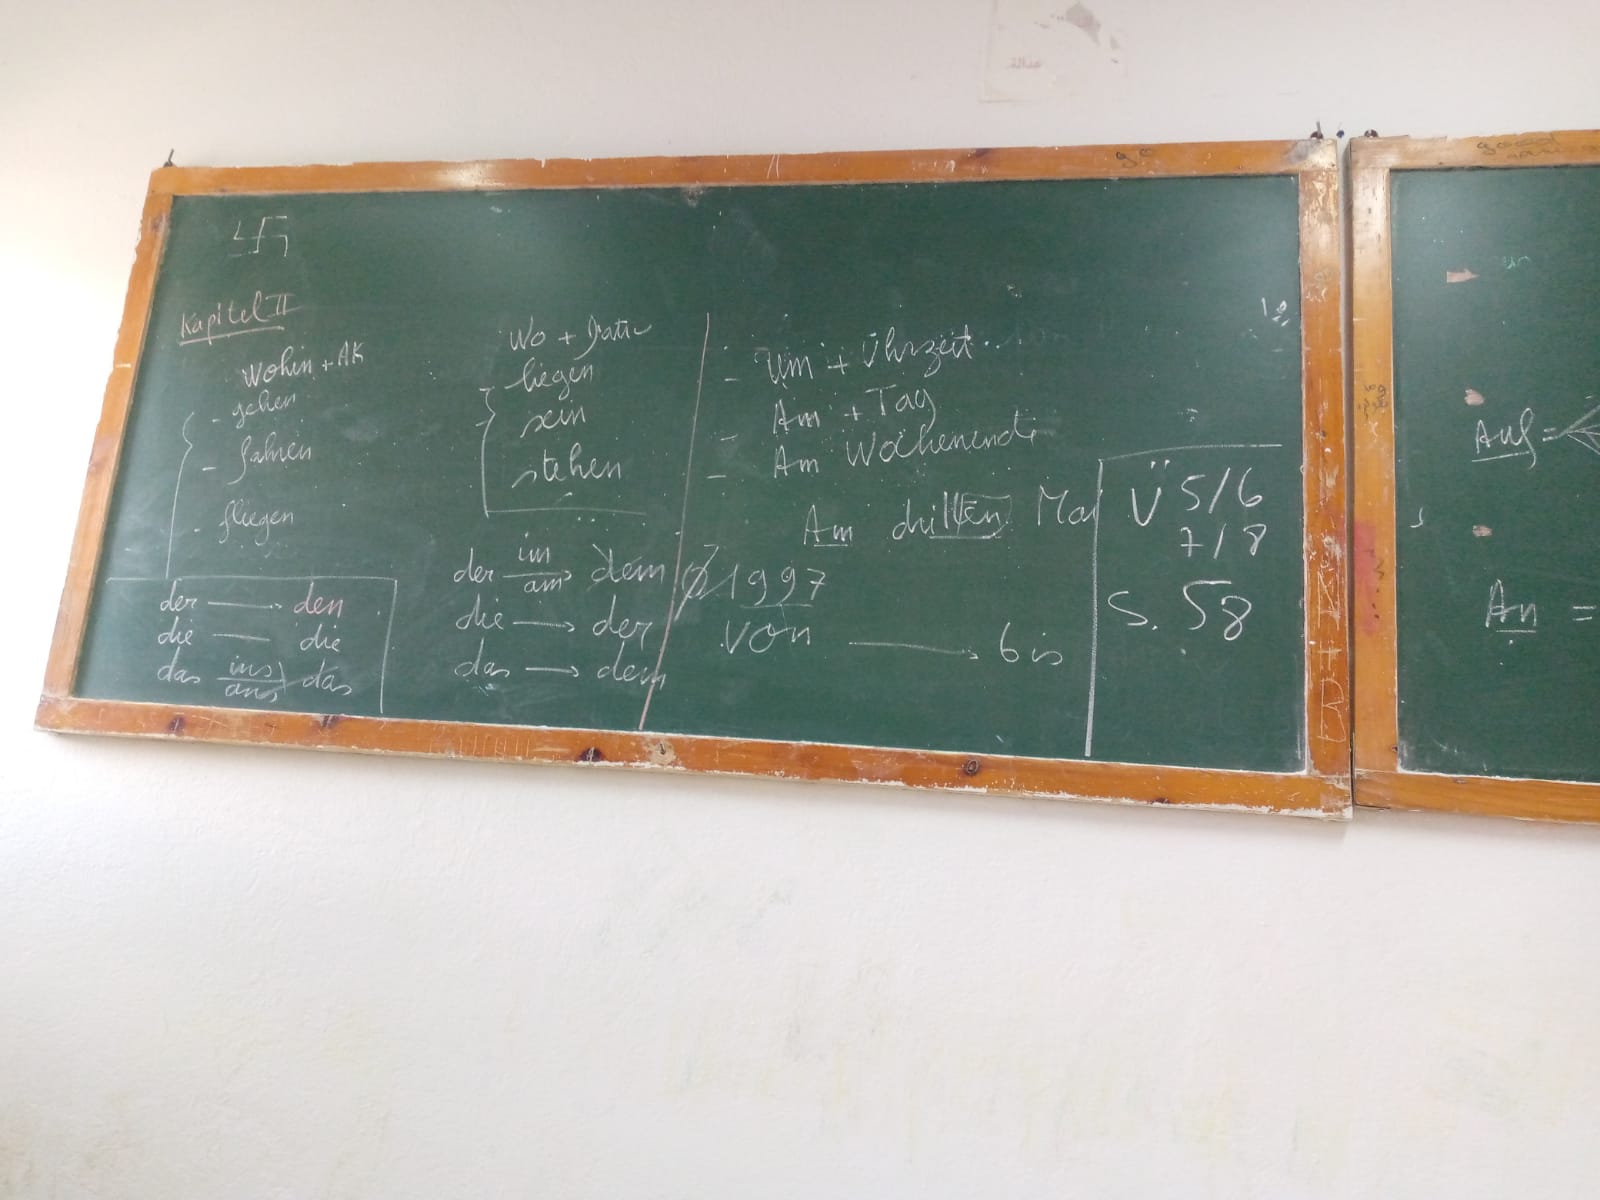 Kapitel II
Wohin + AK
- gehen
- fahren
- fliegen
der → den
die — die
das ins/ans das
Wo + Dativ
- liegen
sein
stehen
der im/am → dem
die → der
das → dem
- Um + Uhrzeit
- Am + Tag
- Am Wochenende
Am dritten Mai
1997
von → bis
Ü 5/6
7/8
S. 58
Auf =
An =